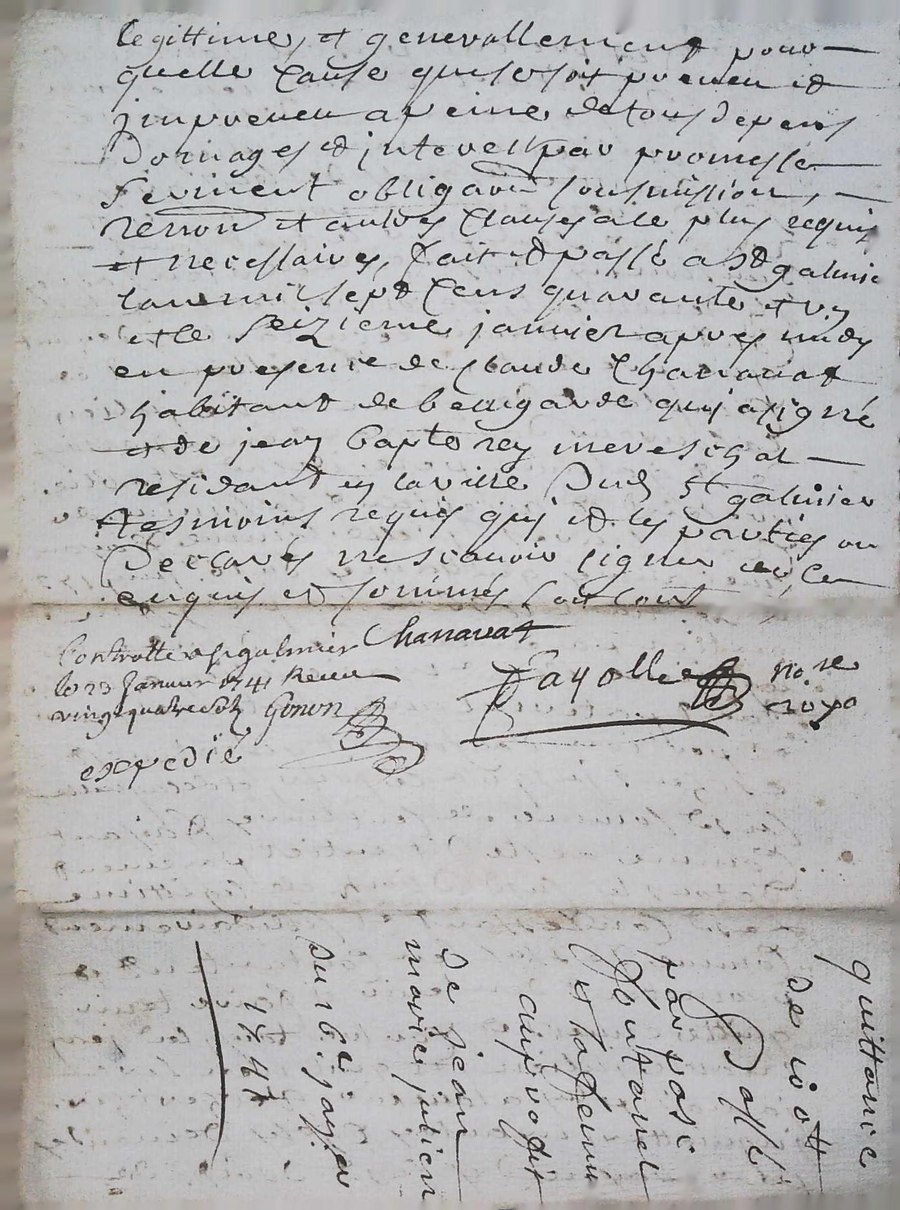 legittimes et generallement pour
quelle cause que se soit preveu et
impreveu a peine de tous depens
Domages et interest par promesse
serment obligaon soumission,
renon et autres clauses a ce plus requis
et necessaires, fait et passé a St galmier
lan mil sept cens quarante et un
et le seizieme janvier apres midy
en presence de claude Chanavat
habitant de bellegarde qui a signé
et de jean bapte rey mereschal
residant en la ville Dud St galmier
tesmoins requis qui et les parties on
Declarés ne scavoir signer de ce
enquis et sommés
Chanavat
Controllé a St galmier
le 23 Janvier 1741 Receu
vingt quatre sols Gonon
Fayolle nore
royal
expedié
quittance
de 10 tt
Passé
par
fontanel
et sa femme
au profit
de jean
marie julien
Du 16e janer
1741